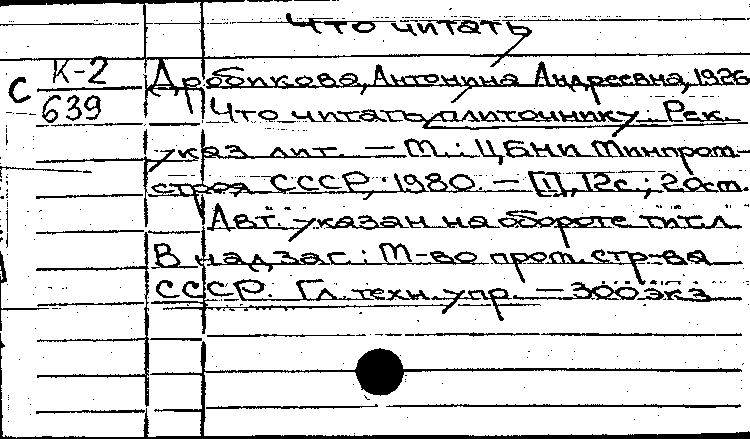 Что читать
С К-2 Дробикова, Антонина Андреевна, 1926
639 Что читать плиточнику: Рек.
указ лит. — М.: ЦБНТИ Минпром-
строя СССР, 1980. — [1], 12с.; 20см.
Авт. указан на обороте тит.л
В надзаг: М-во пром. стр-ва
СССР. Гл. техн. упр. — 300экз